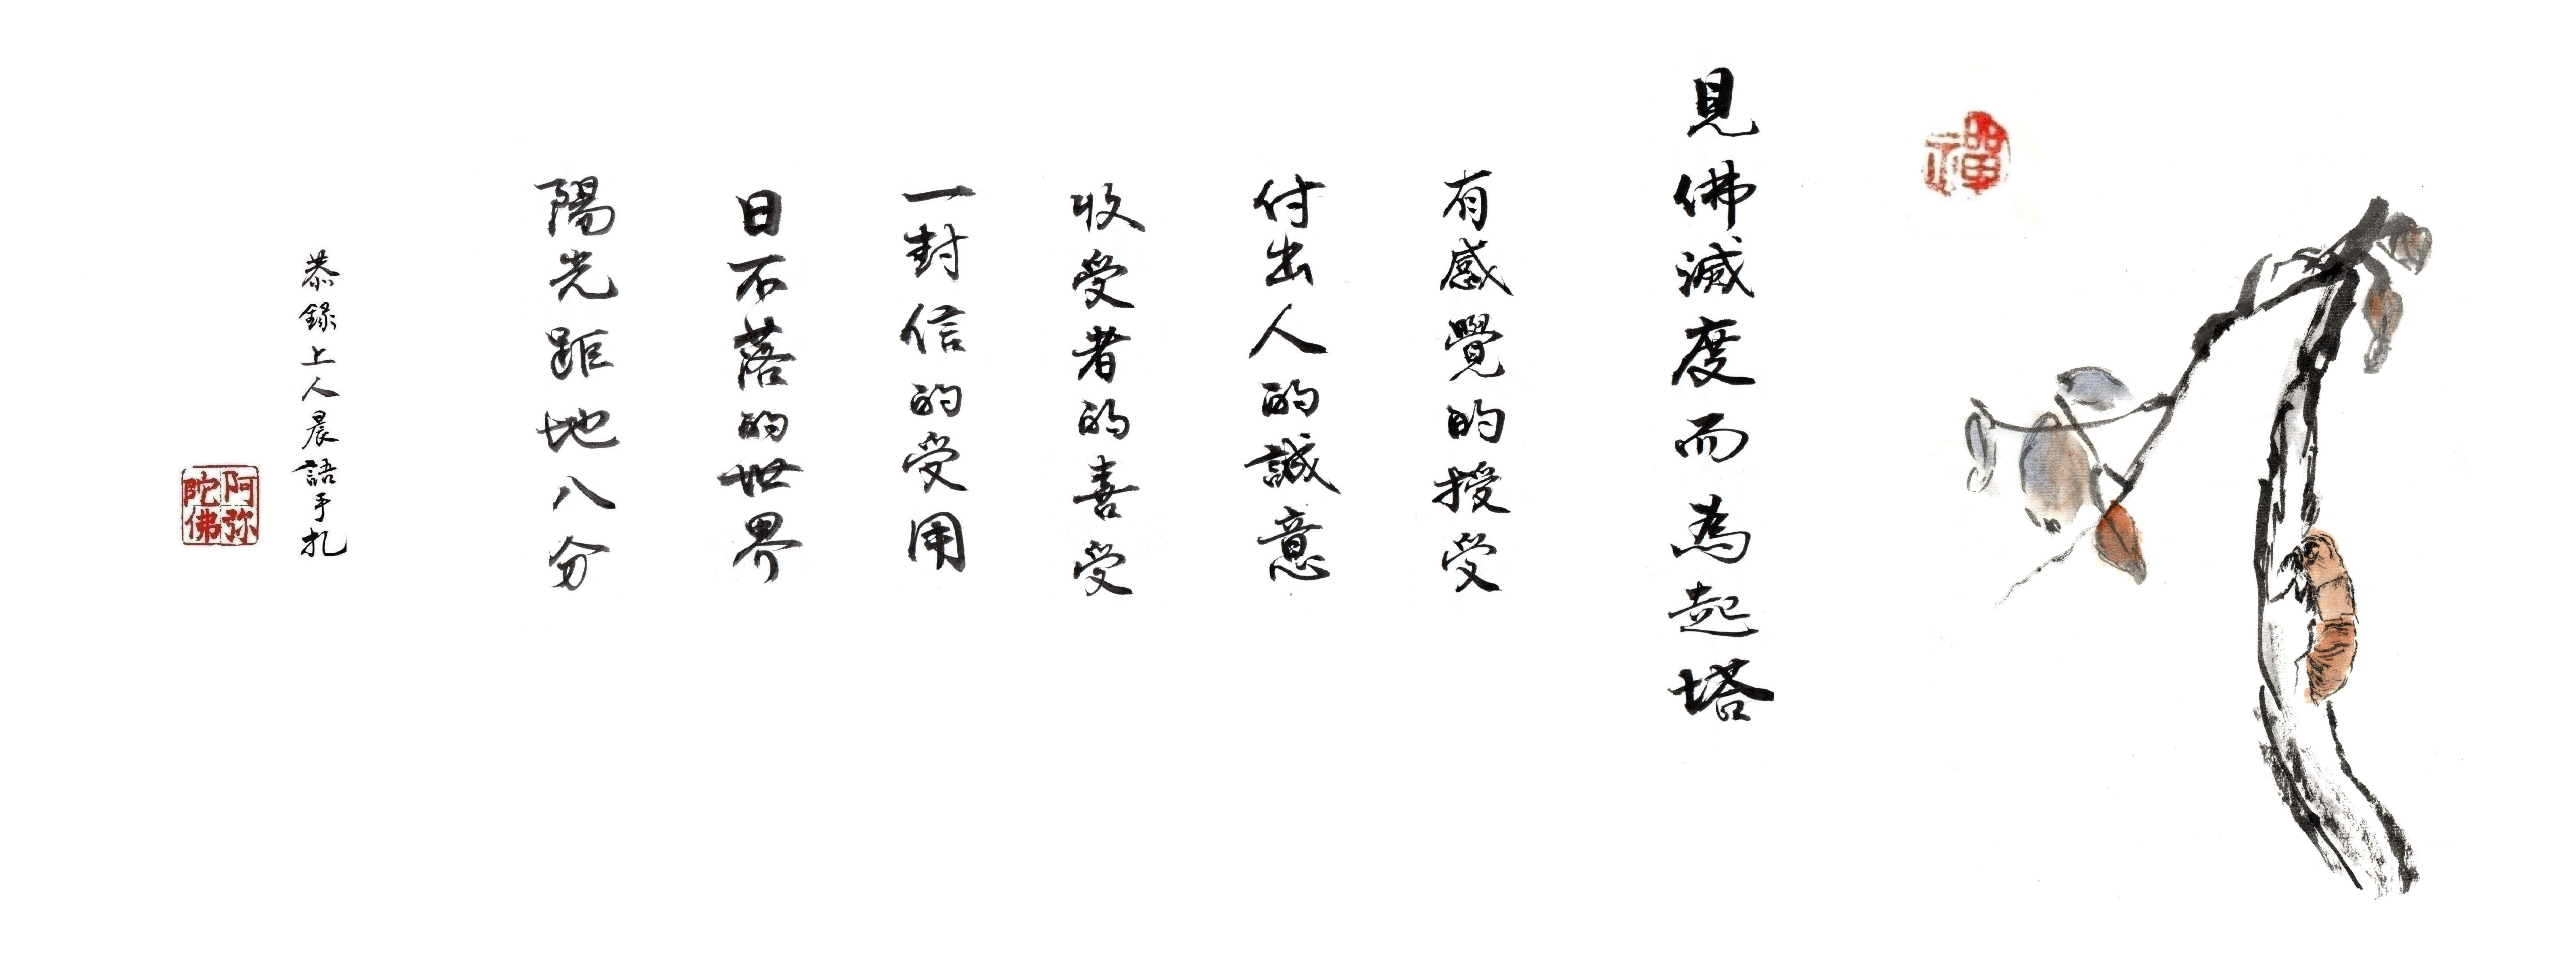 禪
見佛滅度而為起塔
有感覺的授受
付出人的誠意
收受者的喜受
一封信的受用
日不落的世界
陽光距地八分
恭錄上人晨語手札
阿弥陀佛